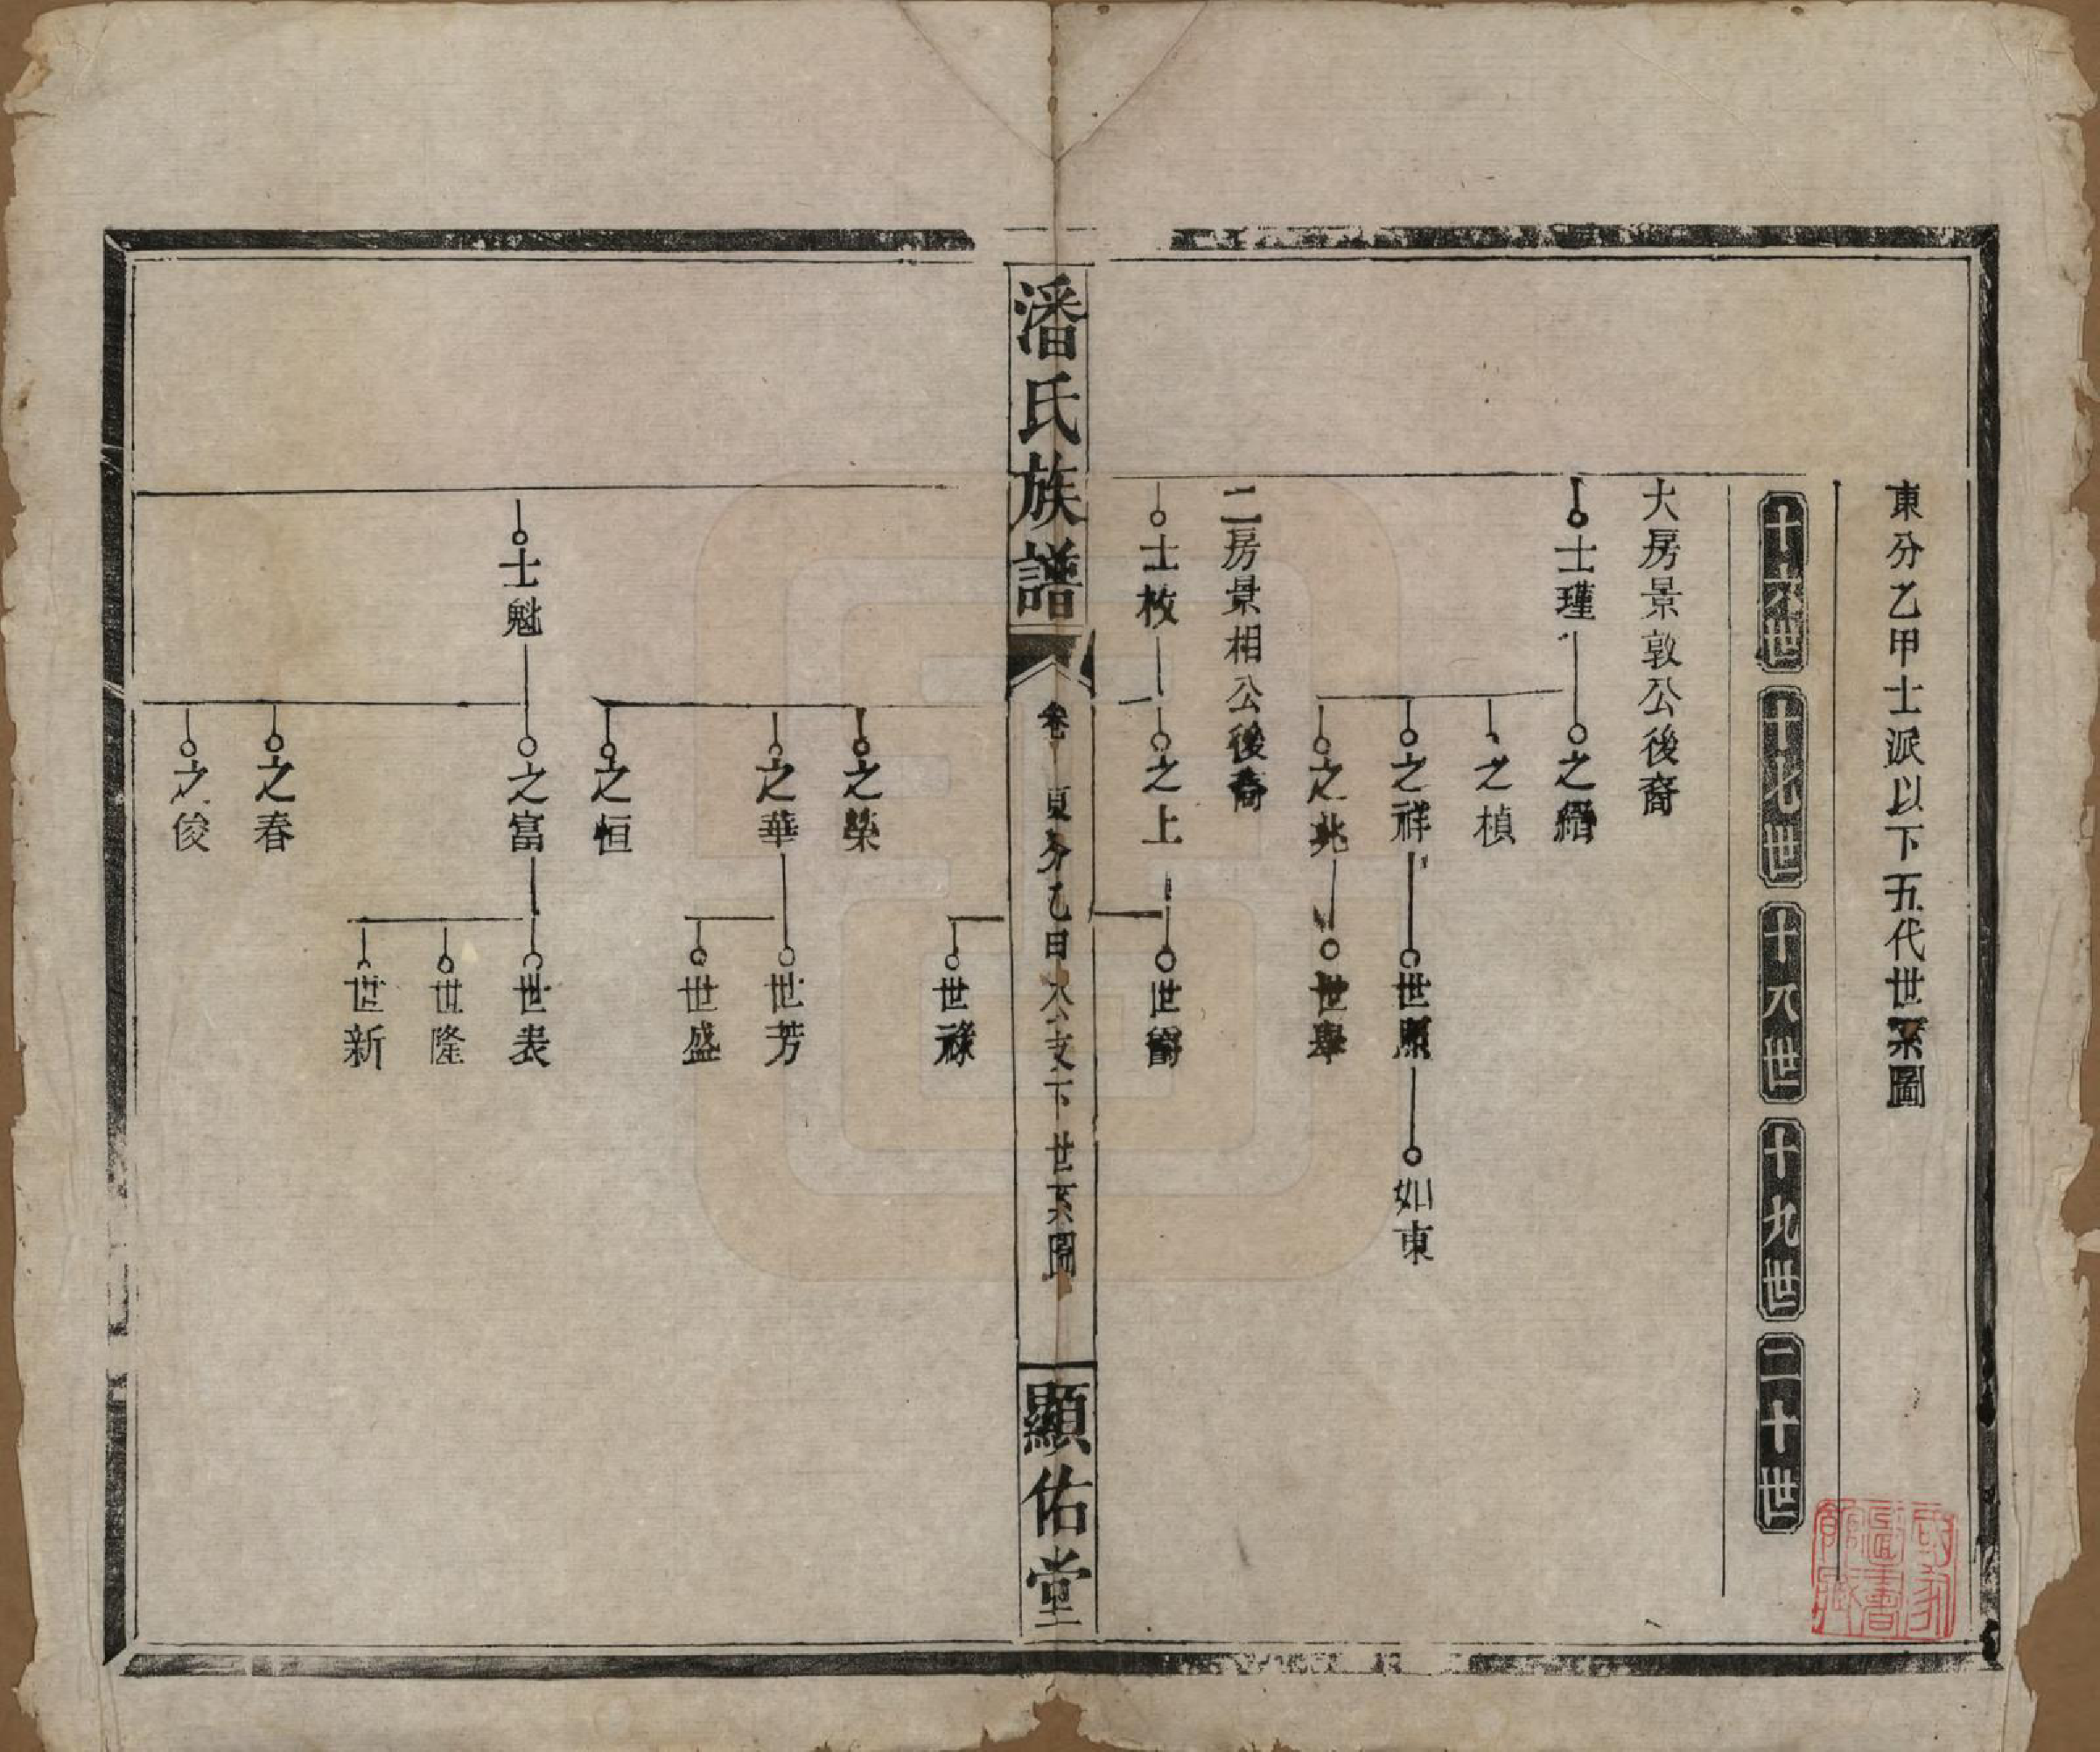 東分乙甲士派以下五代世系圖
十六世
十七世
十八世
十九世
二十世
大房景敦公後裔
士瑾
之縉
之楨
之祥
世照
如東
之兆
世舉
二房景相公後裔
士枚
之上
世爵
潘氏族譜
卷
東分乙甲
支下世系圖
顯佑堂
世祿
之榮
之華
世芳
世盛
之恒
士魁
之富
世表
世隆
世新
之春
之俊
國家圖書館藏